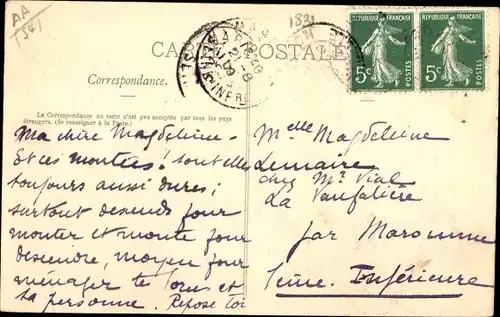 AA
1581
1831
CARTE POSTALE
RÉPUBLIQUE FRANÇAISE
5c
POSTES
RÉPUBLIQUE FRANÇAISE
5c
POSTES
Correspondance.
La Correspondance au recto n'est pas acceptée par tous les pays
étrangers. (Se renseigner à la Poste.)
Ma chère Magdeleine.
Et ces montées! sont elles
toujours aussi dures;
surtout descends pour
monter et monte pour
descendre, moyen pour
ménager te et
ta personne. Repose toi
Melle Magdeleine
Lemaire
chez Mr Vial
La Vaupalière
par Maromme
Seine Inférieure